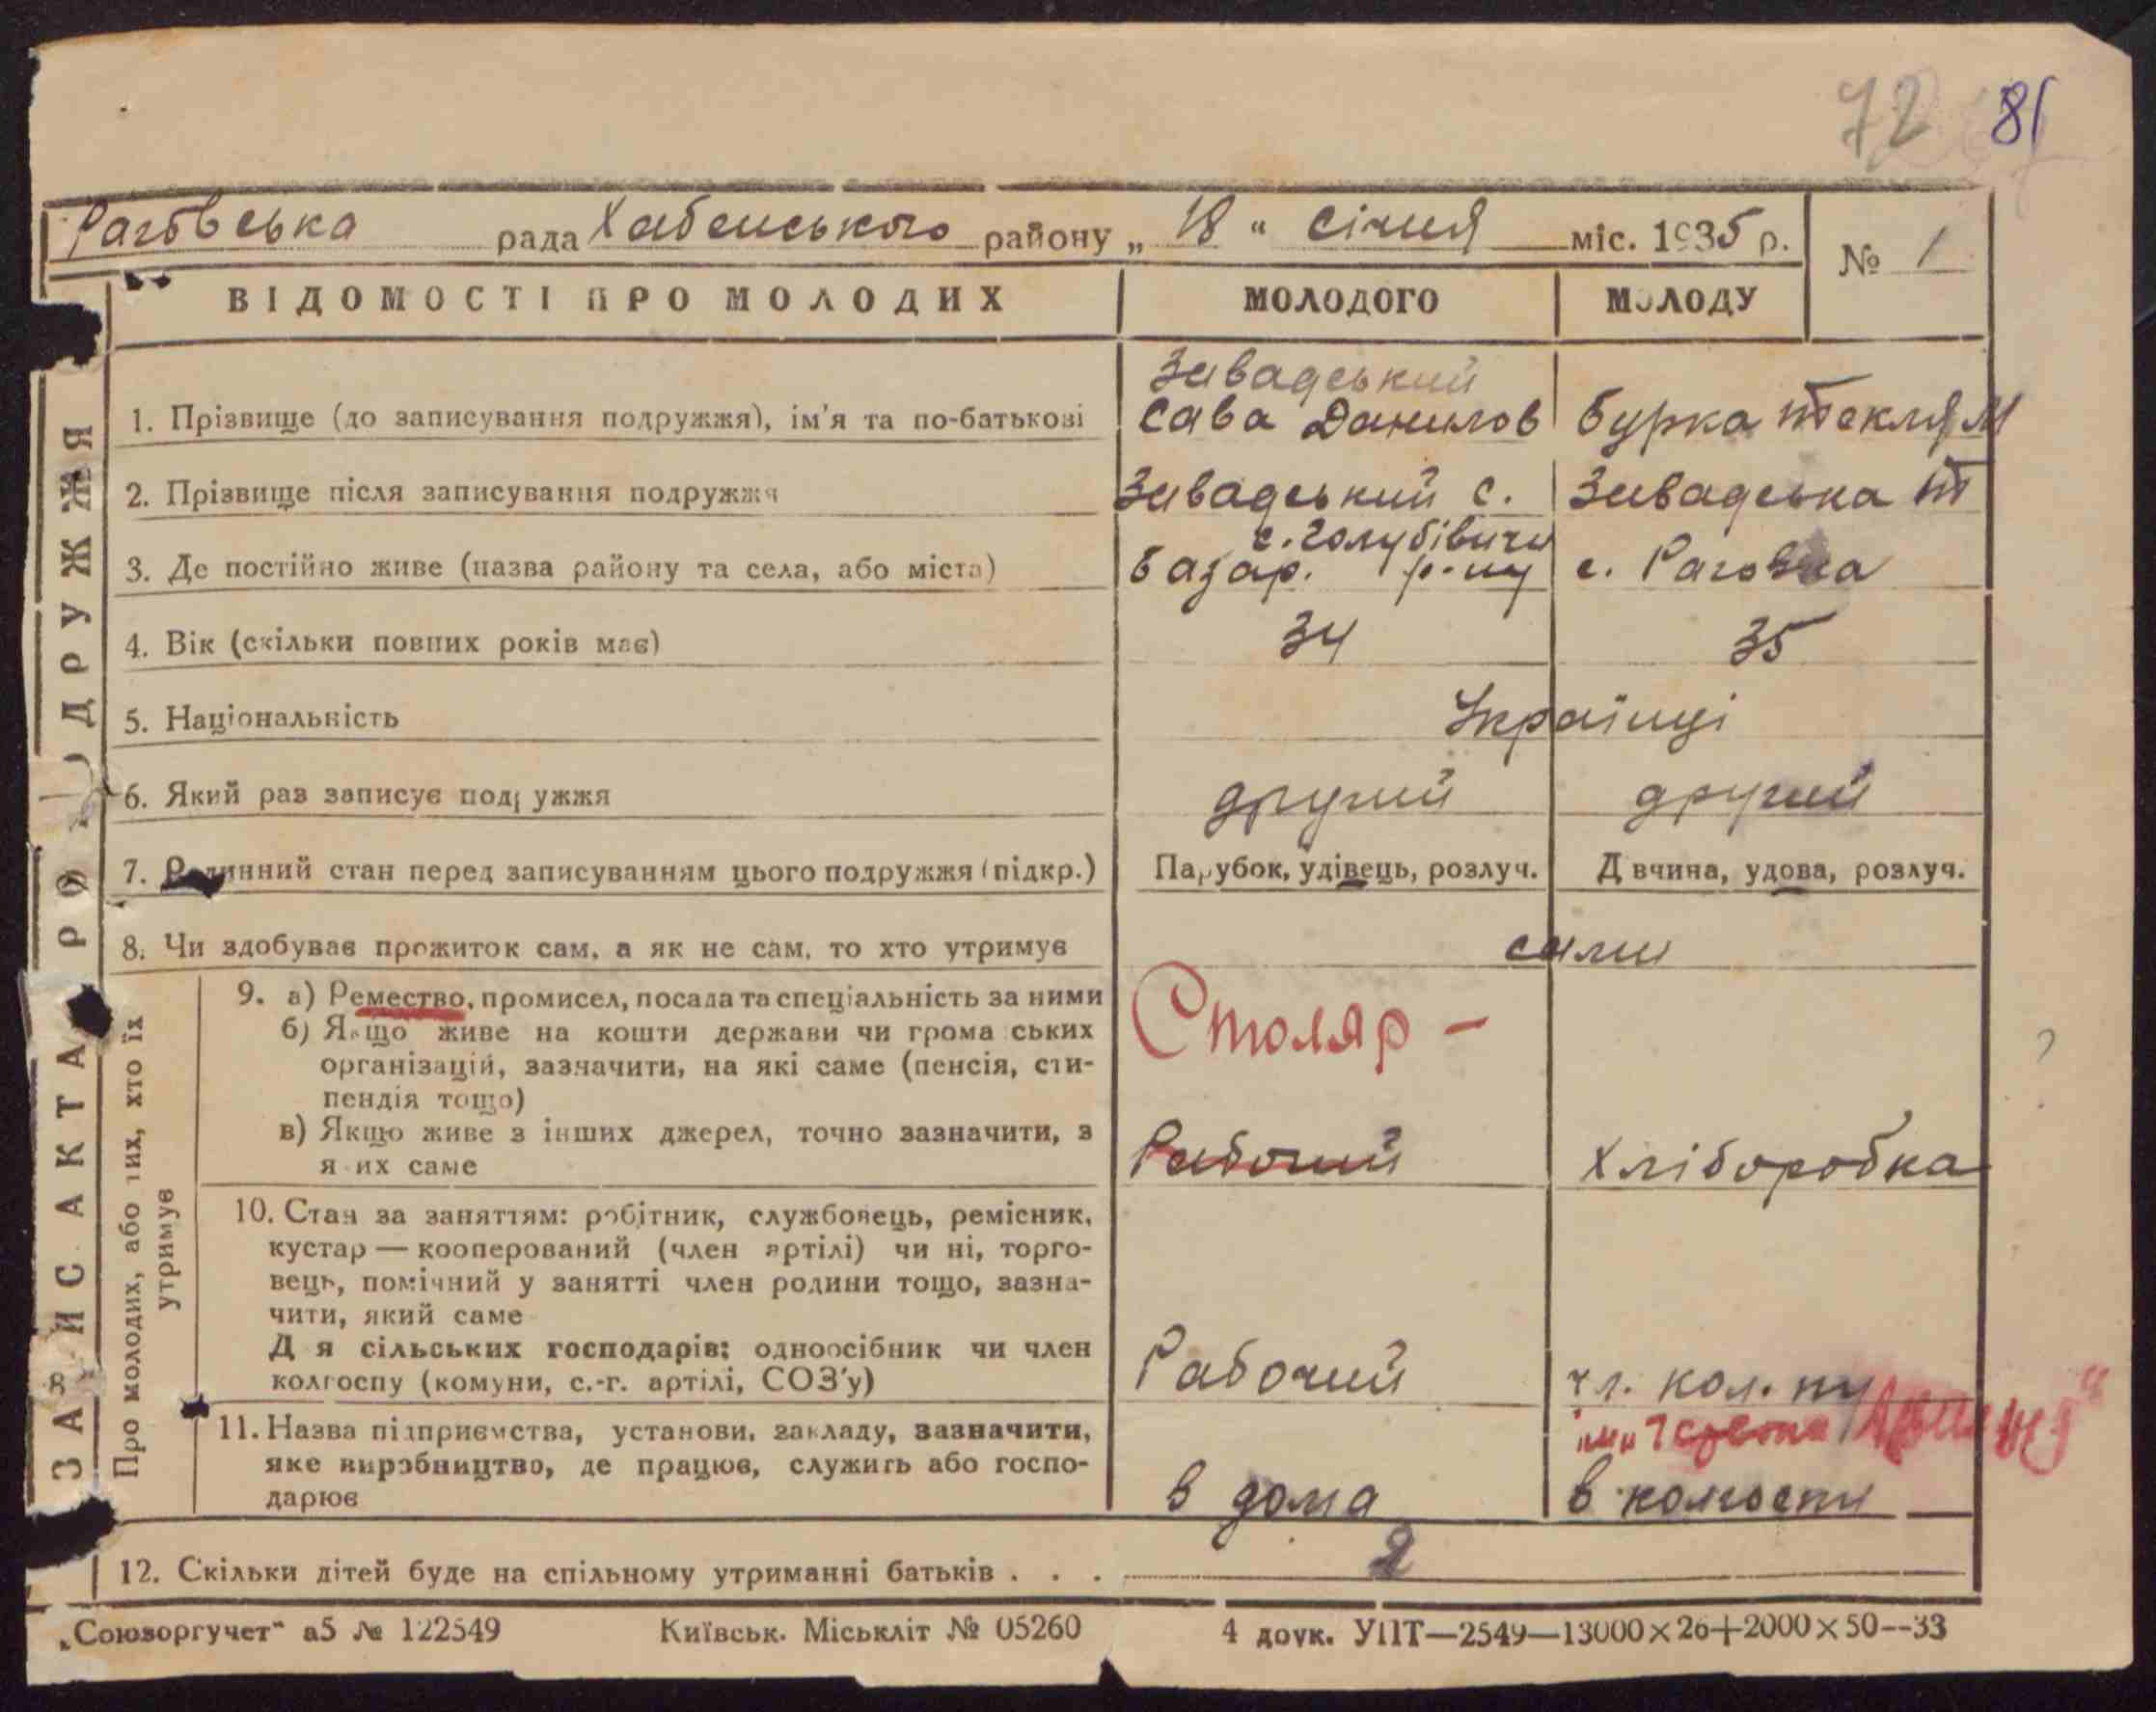 72 81
Раговська рада Хабенського району „ 18 “ Січня міс. 1935 р. № 1
ВІДОМОСТІ ПРО МОЛОДИХ МОЛОДОГО МОЛОДУ
ЗАПИС АКТА ПРО ПОДРУЖЖЯ
Завадський
1. Прізвище (до записування подружжя), ім'я та по-батькові Сава Данилов Бурка Текля М
2. Прізвище після записування подружжя Завадський С. Завадська Т
с. Голубівичи
3. Де постійно живе (назва району та села, або міста) Базар. р-ну с. Раговка
4. Вік (скільки повних років має) 34 35
5. Національність Українці
6. Який раз записує подружжя другий другий
7. Родинний стан перед записуванням цього подружжя (підкр.) Парубок, удівець, розлуч. Д вчина, удова, розлуч.
8. Чи здобуває прожиток сам, а як не сам, то хто утримує сами
Про молодих, або тих, хто їх утримує
9. а) Ремество, промисел, посада та спеціальність за ними Столяр -
б) Якщо живе на кошти держави чи грома ських
організацій, зазначити, на які саме (пенсія, сти-
пендія тощо)
в) Якщо живе з інших джерел, точно зазначити, з
яких саме Рабочий Хліборобка
10. Стан за заняттям: робітник, службовець, ремісник,
кустар — кооперований (член артілі) чи ні, торго-
вець, помічний у занятті член родини тощо, зазна-
чити, який саме
Д я сільських господарів: одноосібник чи член
колгоспу (комуни, с.-г. артілі, СОЗ'у) Рабочий чл. кол. пу
11. Назва підприємства, установи, закладу, зазначити,
яке виробництво, де працює, служить або госпо-
дарює в дома в колгоспи
12. Скільки дітей буде на спільному утриманні батьків . . . 2
„Союзоргучет“ а5 № 122549 Київськ. Міськліт № 05260 4 друк. УПТ—2549—13000×26+2000×50--33